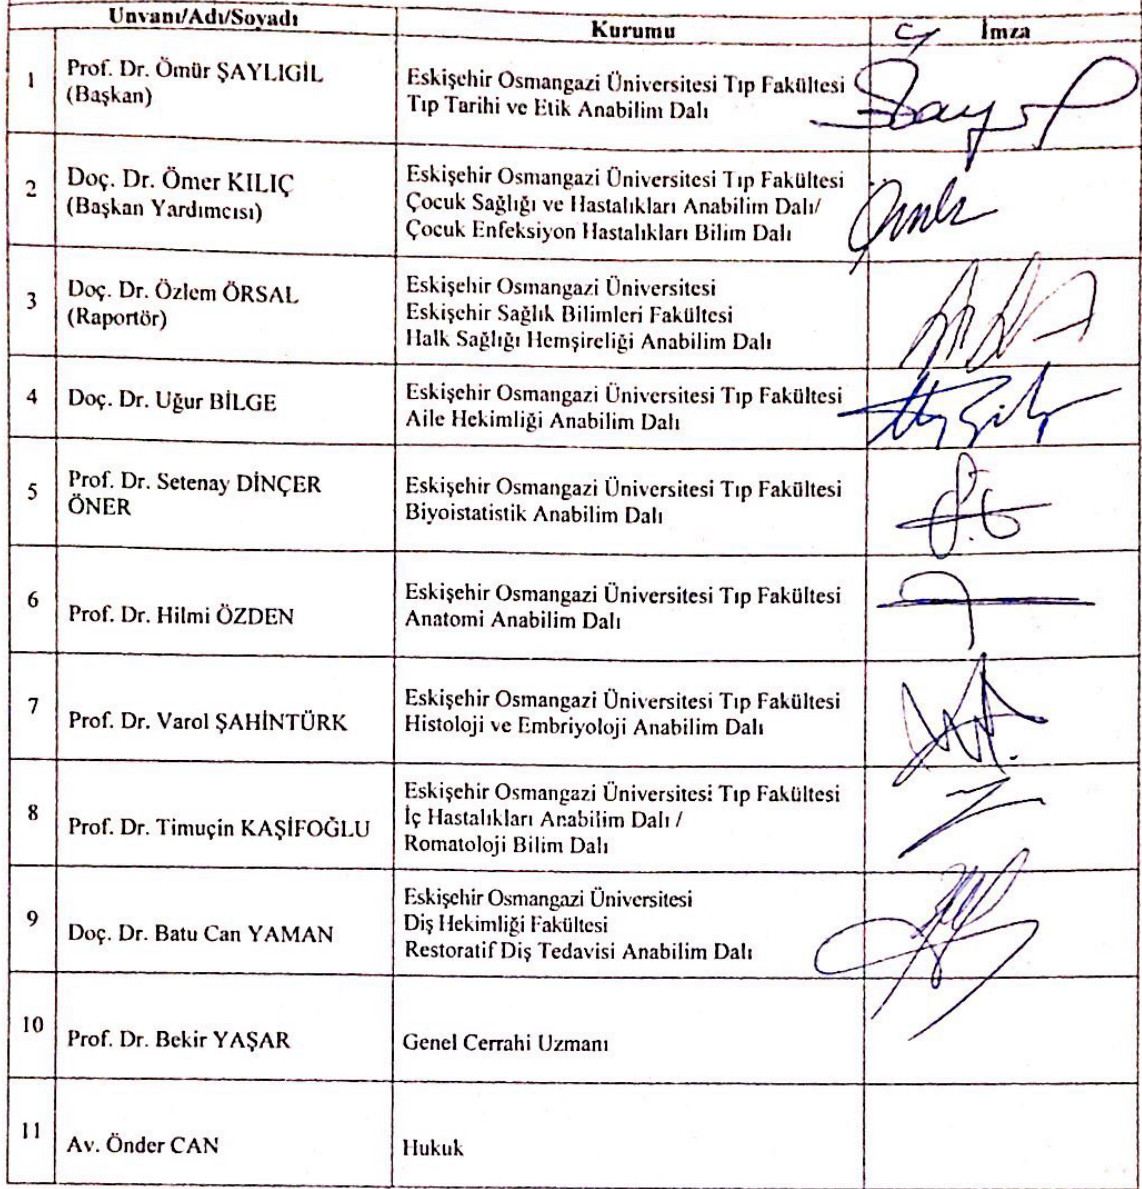 Unvanı/Adı/Soyadı Kurumu İmza
1 Prof. Dr. Ömür ŞAYLIGİL
(Başkan)
Eskişehir Osmangazi Üniversitesi Tıp Fakültesi
Tıp Tarihi ve Etik Anabilim Dalı
2 Doç. Dr. Ömer KILIÇ
(Başkan Yardımcısı)
Eskişehir Osmangazi Üniversitesi Tıp Fakültesi
Çocuk Sağlığı ve Hastalıkları Anabilim Dalı/
Çocuk Enfeksiyon Hastalıkları Bilim Dalı
3 Doç. Dr. Özlem ÖRSAL
(Raportör)
Eskişehir Osmangazi Üniversitesi
Eskişehir Sağlık Bilimleri Fakültesi
Halk Sağlığı Hemşireliği Anabilim Dalı
4 Doç. Dr. Uğur BİLGE
Eskişehir Osmangazi Üniversitesi Tıp Fakültesi
Aile Hekimliği Anabilim Dalı
5 Prof. Dr. Setenay DİNÇER
ÖNER
Eskişehir Osmangazi Üniversitesi Tıp Fakültesi
Biyoistatistik Anabilim Dalı
6 Prof. Dr. Hilmi ÖZDEN
Eskişehir Osmangazi Üniversitesi Tıp Fakültesi
Anatomi Anabilim Dalı
7 Prof. Dr. Varol ŞAHİNTÜRK
Eskişehir Osmangazi Üniversitesi Tıp Fakültesi
Histoloji ve Embriyoloji Anabilim Dalı
8 Prof. Dr. Timuçin KAŞİFOĞLU
Eskişehir Osmangazi Üniversitesi Tıp Fakültesi
İç Hastalıkları Anabilim Dalı /
Romatoloji Bilim Dalı
9 Doç. Dr. Batu Can YAMAN
Eskişehir Osmangazi Üniversitesi
Diş Hekimliği Fakültesi
Restoratif Diş Tedavisi Anabilim Dalı
10 Prof. Dr. Bekir YAŞAR
Genel Cerrahi Uzmanı
11 Av. Önder CAN
Hukuk